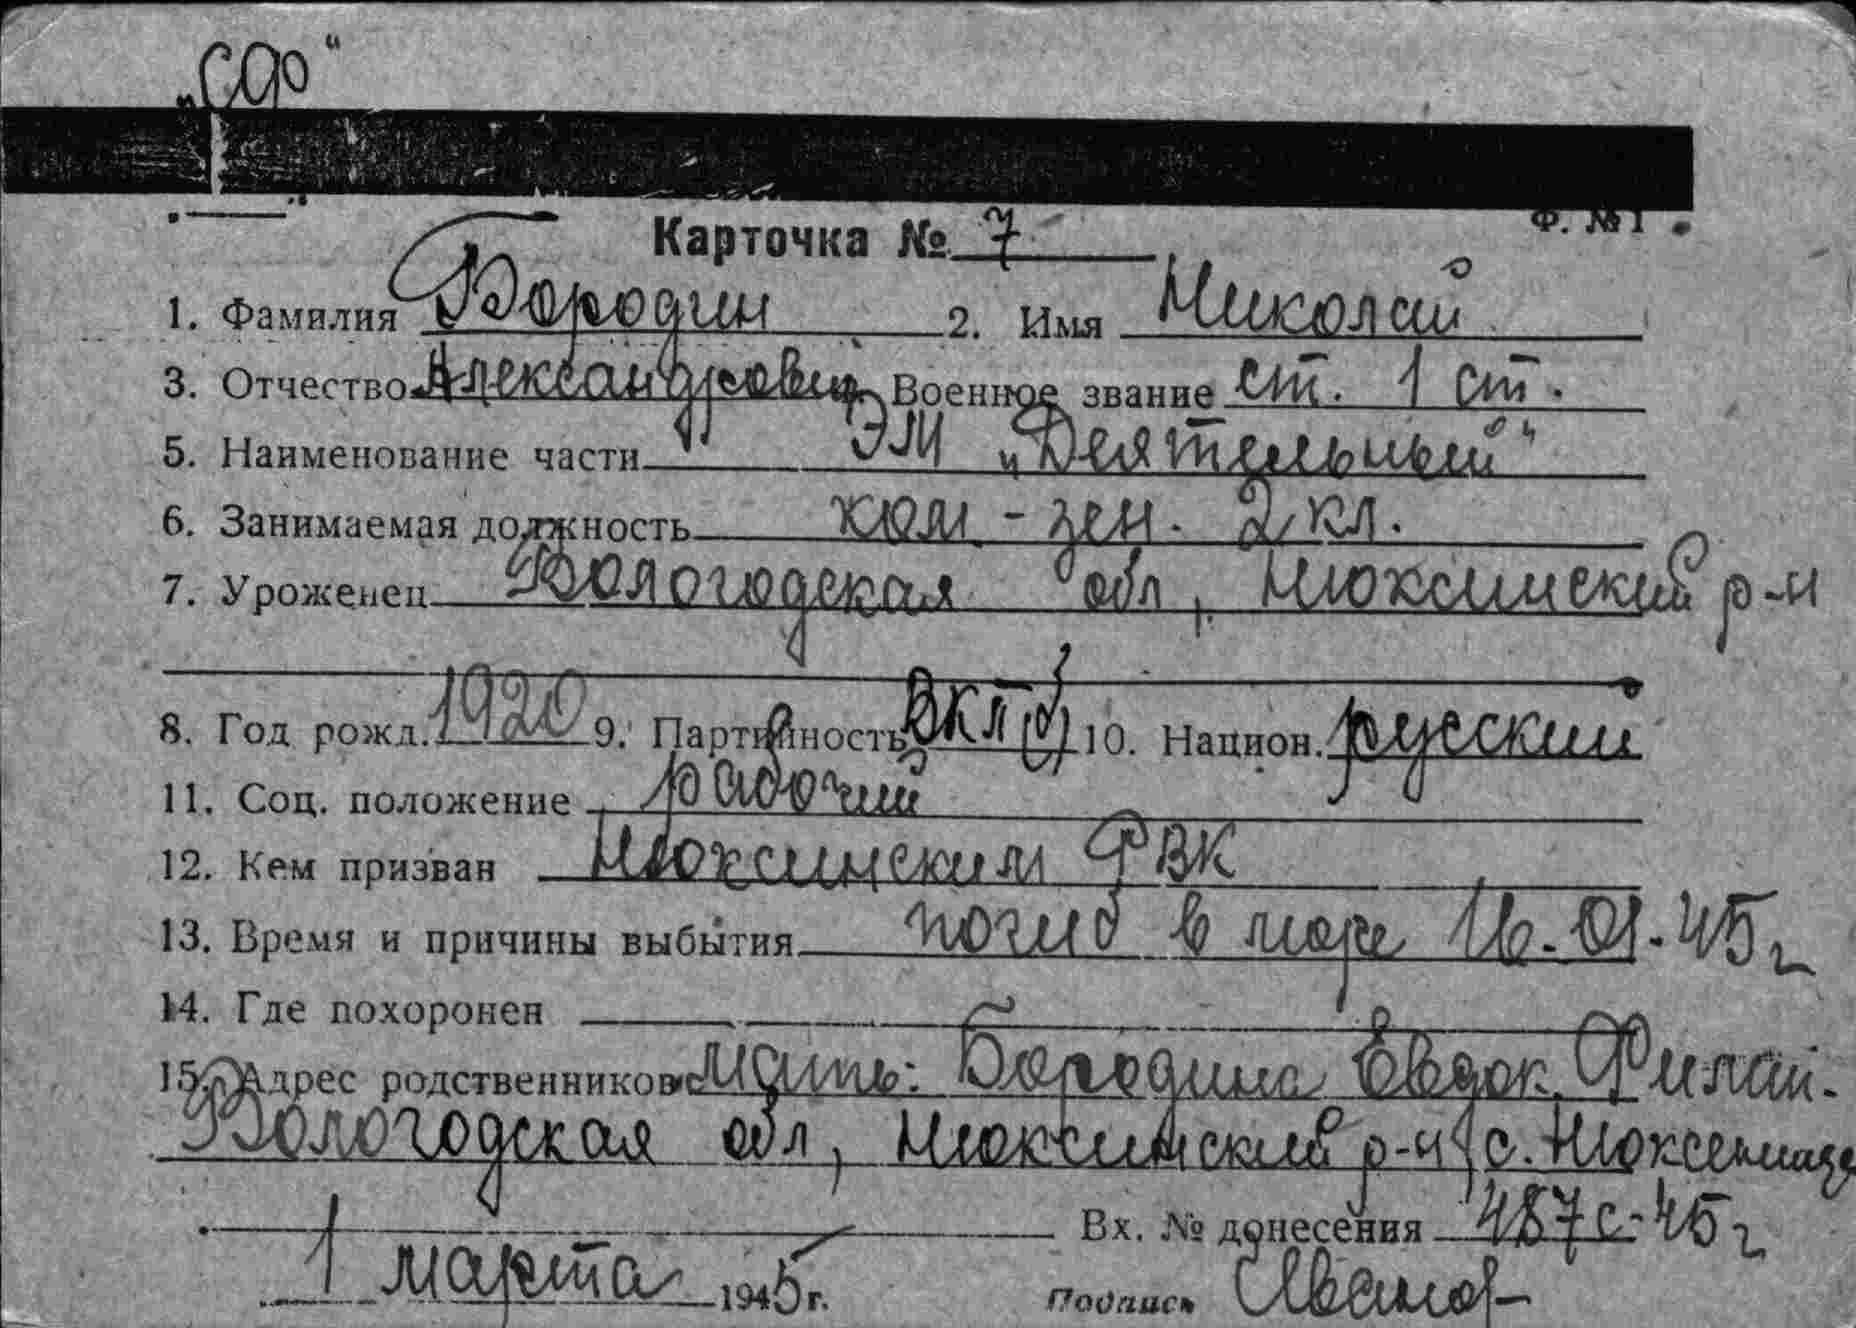 „СФо“
Ф. № 1
Карточка № 7
1. Фамилия Бородин 2. Имя Николай
3. Отчество Александрович Военное звание ст. 1 ст.
5. Наименование части ЭМ „Деятельный“
6. Занимаемая должность ком-зен. 2 кл.
7. Уроженец Вологодская обл, Нюксинский р-н
8. Год рожд. 1920 9. Партийность ВКП(б) 10. Национ. русский
11. Соц. положение рабочий
12. Кем призван Нюксинским РВК
13. Время и причины выбытия погиб в море 16-01-45 г
14. Где похоронен
15. Адрес родственников мать: Бородина Евдок.
Вологодская обл, Нюксинский р-н с.
Вх. № донесения 487с-45 г
1 марта 1945 г. Подпись Иванов